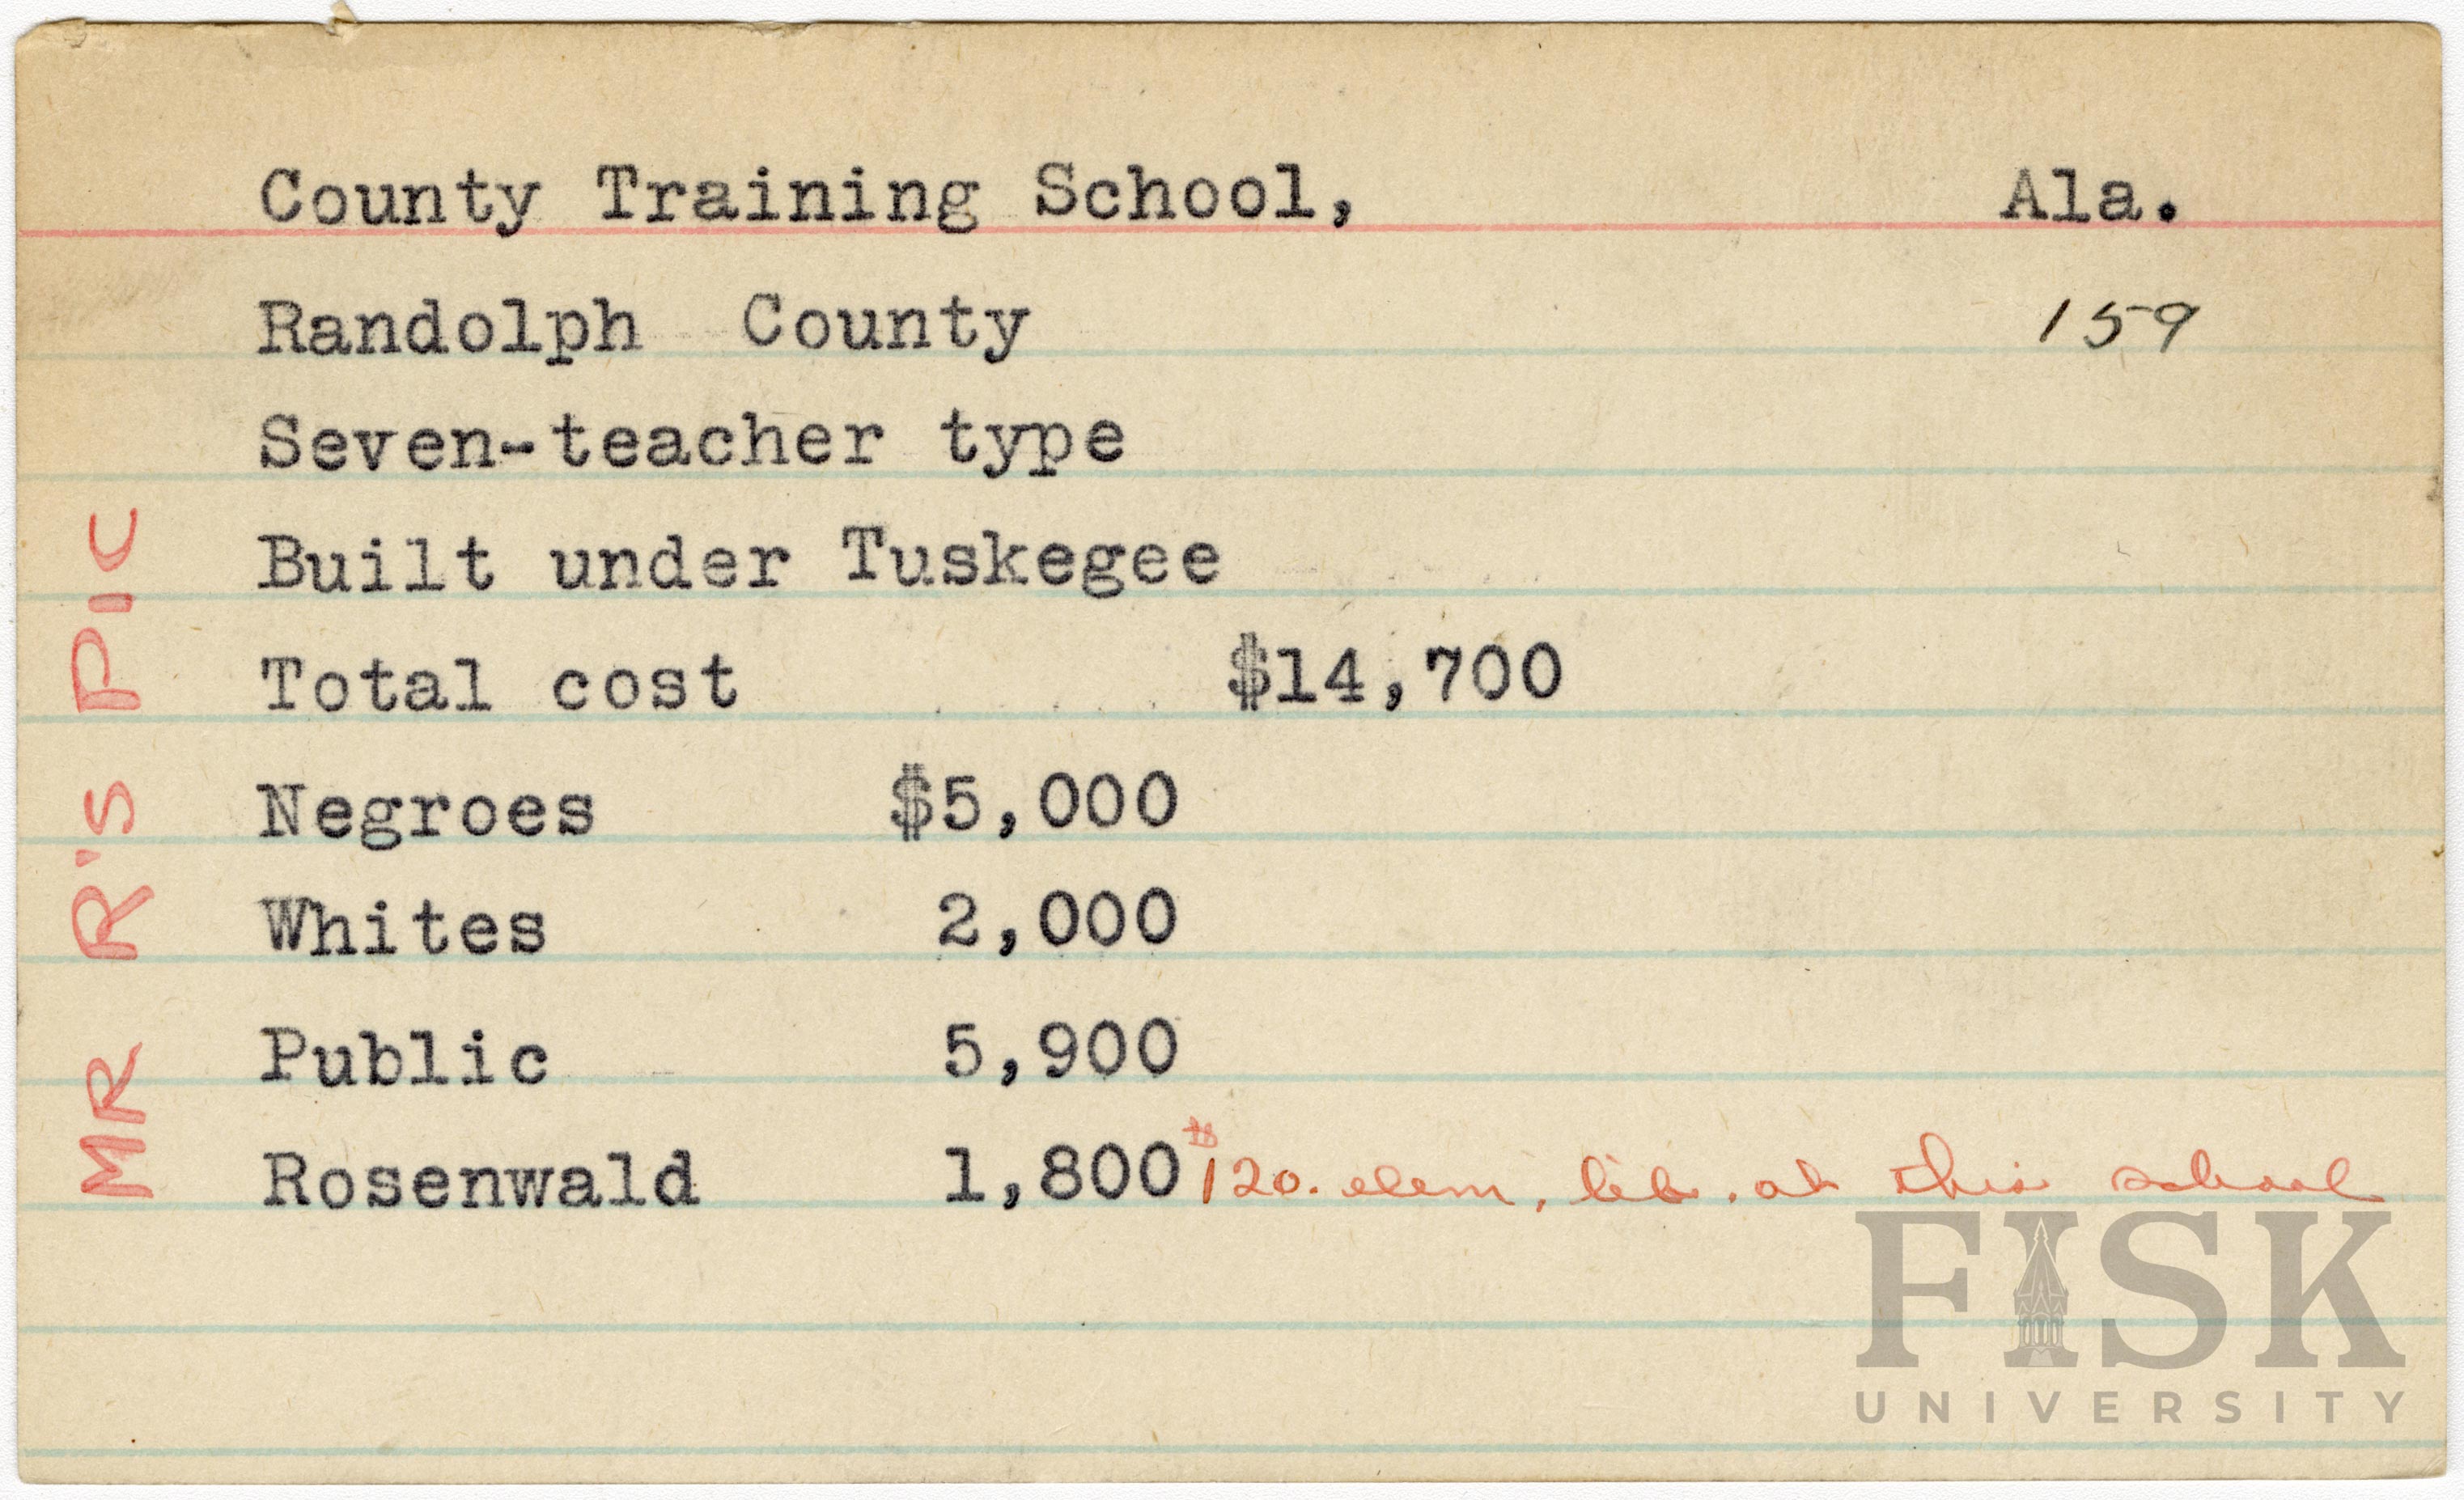 County Training School, Ala.
Randolph County 159
Seven-teacher type
Built under Tuskegee
Total cost $14,700
Negroes $5,000
Whites 2,000
Public 5,900
Rosenwald 1,800 $120. elem. lib. at this school
MR R'S PIC
FISK
UNIVERSITY